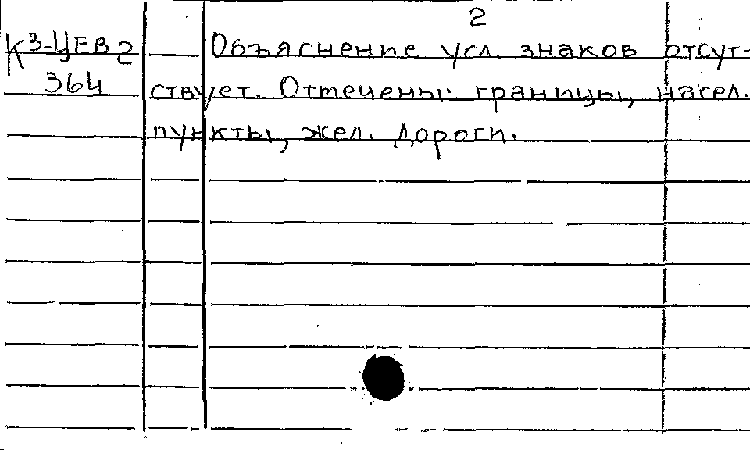 2
К 3-ЦЕВ 2
364
Объяснение усл. знаков отсут-
ствует. Отмечены: границы, насел.
пункты, жел. дороги.